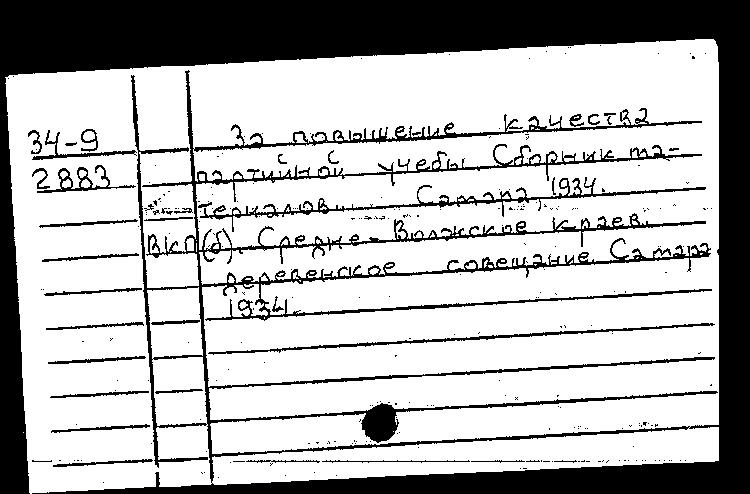 34-9 За повышение качества
2883 партийной учебы. Сборник ма-
териалов... Самара, 1934.
ВКП(б). Средне-Волжское краев.
деревенское совещание. Самара.
1934.